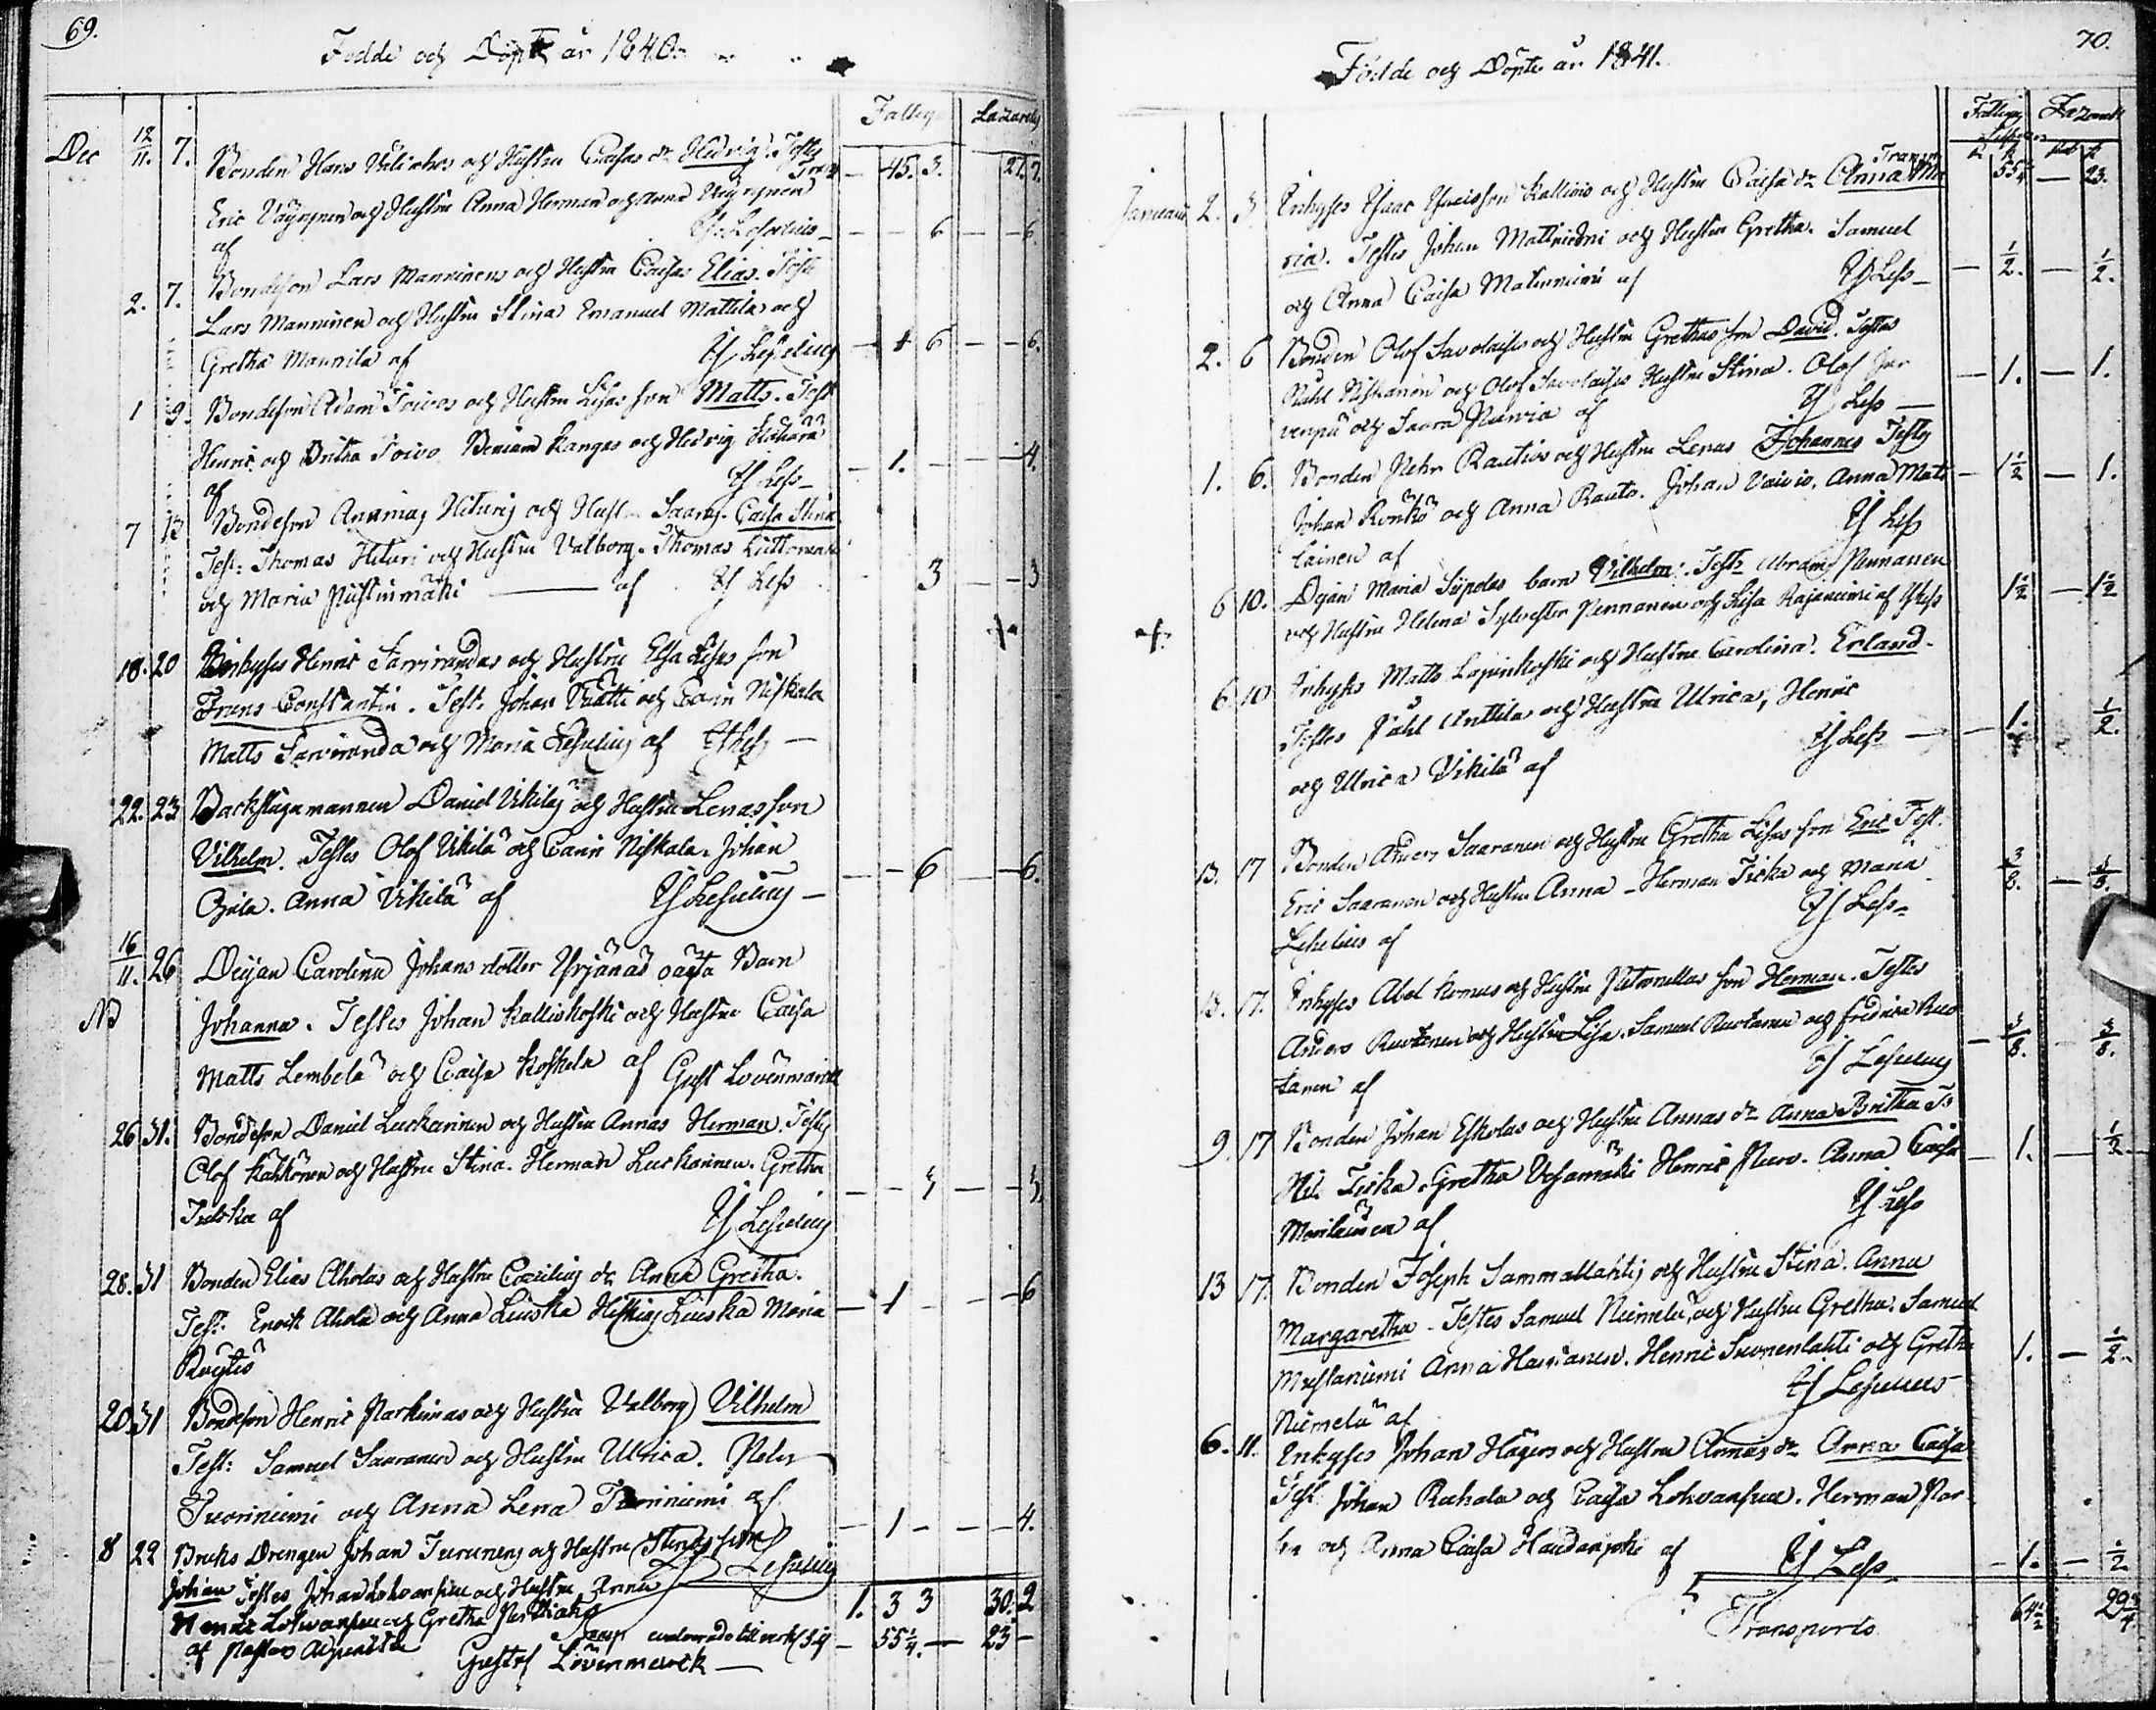 69.
Födde och Döpte år 1840.
Fattige Lazarets
Dec 12/11. 7. Bonden Hans Väliahos och Hustru Caisas dr Hedvig. Testes
Eric Väyrynen och Hustru Anna Herman och Anna Väyrynen Trsp — 45. 3. 27. 7.
af Is. Leselius — — 6 — — 6
2. 7. Bondeson Lars Manninens och Hustru Caisas Elias. Test.
Lars Manninen och Hustru Stina Emanuel Mattila och
Gretha Mannila af Is Leselius — 1 6 — — 6.
1 9. Bondeson Adam Toivos och Hustru Lisas son Matts. Test
Henric och Britha Toivo Beniam Kangas och Hedvig
af Is Less — 1. — — 4.
7 13 Bondeson Ananias Hituris och Hust. Saaras. Caisa Stina
Test: Thomas Hituri och Hustru Valborg. Thomas
och Maria — af Is Less 3 — — 3
18. 20 Inhyses Henric Sarvirandas och Hustru Elsa Lisas son
Frans Constantin. Test. Johan och Carin Niskala
Matts Sarviranda och Maria Leselius af Is Less —
22. 23 Backstugumannen Daniel Vikiläs och Hustru Lenas son
Vilhelm. Testes Olof Vikilä och Carin Niskala. Johan
Anna Vikilä af Is Leselius — — — 6 — — 6.
16/11. 26 Deijan Carolina Johans dotter Yrjänäs oägta Barn
NB Johanna. Testes Johan Kalliokoski och Hustru Caisa
Matts Lembelä och Caisa Koskela af Gust Lövenmarck
26 31. Bondeson Daniel Luckarinen och Hustru Annas Herman. Testes
Olof Kähkönen och Hustru Stina. Herman Luckarinen. Gretha
af Is Leselius — — 3 — — 3.
28. 31 Bonden Elias Aholas och Hustru Cæcilias dr Anna Gretha.
Test. Enock Ahola och Anna Liuska Hiskias Liuska Maria — 1 — — 6
20 31 Bondeson Henric Parkinas och Hustru Valborg Vilhelm
Test: Samuel Saaranen och Hustru Ulrica. Peter
Tuoriniemi och Anna Lena Tuoriniemi af — 1 — — — 4.
8 22 Bruks Drengen Johan Turunens och Hustru Stinas son Leselius
Johan Testes Johan Lohvansuu och Hustru Anna
Henric Lohvansuu och Gretha 1. 3 3 30. 2
af Pastors Adjuncten till verk — 55 1/4. — 23 —
Gustaf Lövenmarck —
70.
Födde och Döpte år 1841.
Fattige Lazarett
Januarii 2. 3 Inhyses Isaac Isacsson Kallios och Hustru Caisa dr Anna Ma Transp 55 1/4 — 23.
ria. Testes Johan Mattniemi och Hustru Gretha. Samuel
och Anna Caisa Mateniemi af Is Less — — 1/2. — 1/2.
2. 6 Bonden Olof Savolaises och Hustru Grethas son David. Testes
Påhl Niskanen och Olof Savolaises Hustru Stina. Olof Jar
venpä och Saara af Is Less — — 1. — 1.
1. 6. Bonden Petr Rautios och Hustru Lenas Johannes Testes
Johan Rönkö och Anna Rauto. Johan Vaivio. Anna Mat — 1 1/2 — 1.
lainen af Is Less
6 10. Deijan Maria Siipolas barn Vilhelm. Test. Abram Pennanen
och Hustru Helena Sylvester Pennanen och Lisa Rajaniemi af Is Less 1 1/2 — 1 1/2
6 10 Inhyses Matts Lapinkoski och Hustru Carolina. Erland.
Testes Påhl Anttila och Hustru Ulrica, Henric
och Ulrica Vikilä af Is Less — — 1. 1/2.
13. 17 Bonden Anders Saaranen och Hustru Gretha Lisas son Eric Test.
Eric Saaranen och Hustru Anna — Herman Tiska och Maria 3/8. — 3/8.
Leselius af Is Less —
13. 17. Inhyses Abel Komus och Hustru Petronellas son Herman. Testes
Anders Ruotanen och Hustru Lisa. Samuel Ruotanen och Fredrica Ruo
tanen af Is Leselius — 3/8. — 3/8.
9. 17 Bonden Johan Eskolas och Hustru Annas dr Anna Britha Ts
Nil. Tiska. Gretha Vesamäki Henric Anna Caisa — 1. — 1/2
af Is Less
13 17. Bonden Joseph Sammallahtis och Hustru Stina. Anna
Margaretha — Testes Samuel Niemelä, och Hustru Gretha. Samuel
Mustaniemi Anna Henric Suonenlahti och Gretha 1. — 1/2.
Niemelä af Is Leselius
6. 11. Inhyses Johan Hägers och Hustru Annas dr Anna Caisa
Test. Johan Ruhala och Caisa Lohvansuu. Herman Par
och Anna Caisa Haudanjoki af Is Less — 1. — 1/2
Transporto 64 1/2 29 3/4